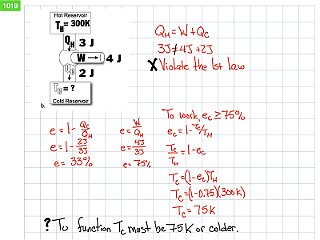 1019
Hot Reservoir
T_H = 300K
Q_H 3 J
W → 4 J
Q_C 2 J
T_C = ?
Cold Reservoir
b.
Q_H = W + Q_C
3J ≠ 4J + 2J
X Violate the 1st law
e = 1 - Q_C/Q_H
e = 1 - 2J/3J
e = 33%
e = W/Q_H
e = 4J/3J
e = 75%
To work, e_c ≥ 75%
e_c = 1 - T_C/T_H
T_C/T_H = 1 - e_c
T_C = (1 - e_c) T_H
T_C = (1 - 0.75)(300K)
T_C = 75K
? To function T_C must be 75K or colder.